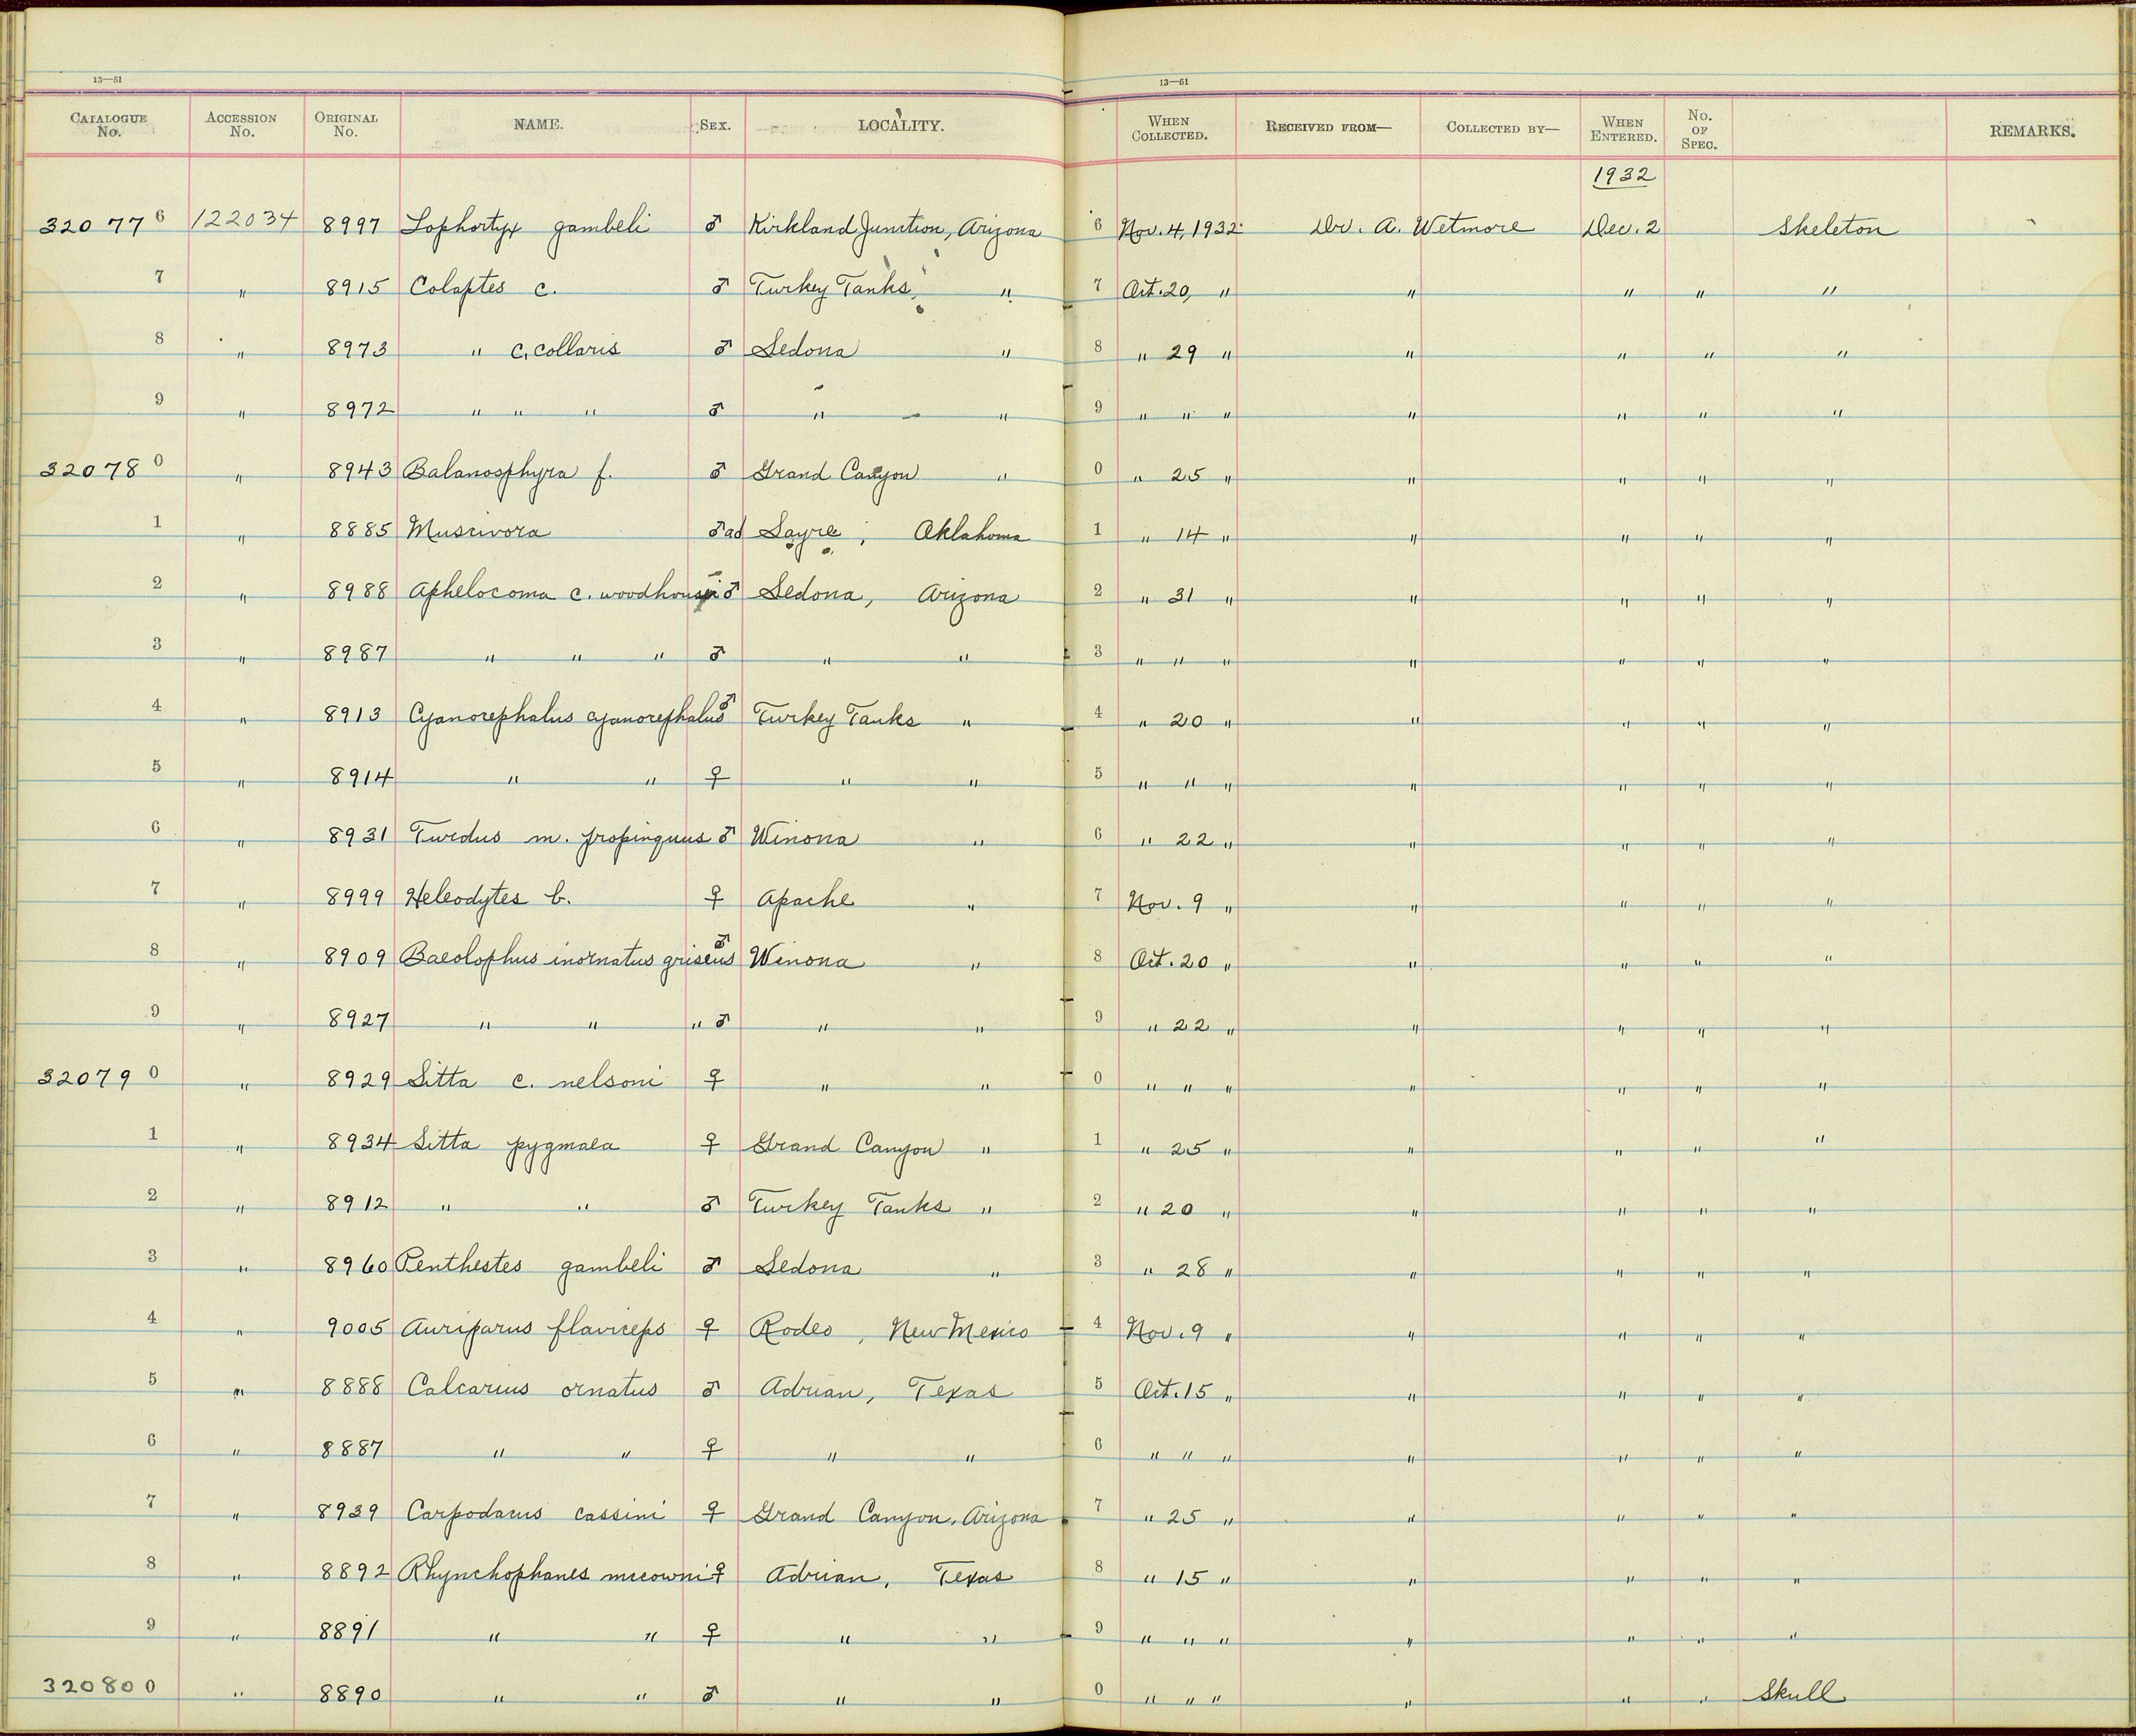 13—51 13—51
CATALOGUE No. ACCESSION No. ORIGINAL No. NAME. SEX. LOCALITY. WHEN COLLECTED. RECEIVED FROM— COLLECTED BY— WHEN ENTERED. No. OF SPEC. REMARKS.
1932
32077 6 122034 8997 Lophortyx gambeli ♂ Kirkland Junction, Arizona 6 Nov. 4, 1932 Dr. A. Wetmore Dec. 2 Skeleton
7 " 8915 Colaptes c. ♂ Turkey Tanks, " 7 Oct. 20, " " " " "
8 " 8973 " c. collaris ♂ Sedona " 8 " 29 " " " " "
9 " 8972 " " " ♂ " " 9 " " " " " " "
32078 0 " 8943 Balanosphyra f. ♂ Grand Canyon " 0 " 25 " " " " "
1 " 8885 Muscivora ♂ad Sayre, Oklahoma 1 " 14 " " " " "
2 " 8988 Aphelocoma c. woodhousei ♂ Sedona, Arizona 2 " 31 " " " " "
3 " 8987 " " " ♂ " " 3 " " " " " " "
4 " 8913 Cyanocephalus cyanocephalus ♂ Turkey Tanks " 4 " 20 " " " " "
5 " 8914 " " ♀ " " 5 " " " " " " "
6 " 8931 Turdus m. propinquus ♂ Winona " 6 " 22 " " " " "
7 " 8999 Heleodytes b. ♀ Apache " 7 Nov. 9 " " " " "
8 " 8909 Baeolophus inornatus griseus ♂ Winona " 8 Oct. 20 " " " " "
9 " 8927 " " " ♂ " " 9 " 22 " " " " "
32079 0 " 8929 Sitta c. nelsoni ♀ " " 0 " " " " " " "
1 " 8934 Sitta pygmaea ♀ Grand Canyon " 1 " 25 " " " " "
2 " 8912 " " ♂ Turkey Tanks " 2 " 20 " " " " "
3 " 8960 Penthestes gambeli ♂ Sedona " 3 " 28 " " " " "
4 " 9005 Auriparus flaviceps ♀ Rodeo, New Mexico 4 Nov. 9 " " " " "
5 " 8888 Calcarius ornatus ♂ Adrian, Texas 5 Oct. 15 " " " " "
6 " 8887 " " ♀ " " 6 " " " " " " "
7 " 8939 Carpodacus cassini ♀ Grand Canyon, Arizona 7 " 25 " " " " "
8 " 8892 Rhynchophanes mccowni ♀ Adrian, Texas 8 " 15 " " " " "
9 " 8891 " " ♀ " " 9 " " " " " " "
32080 0 " 8890 " " ♂ " " 0 " " " " " " Skull